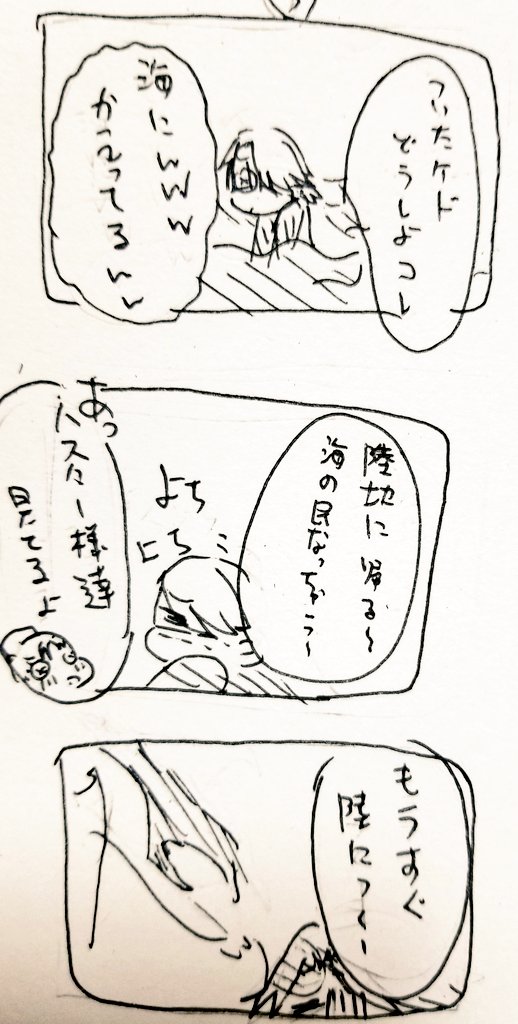 ついたケド
どうしよコレ
海にwww
かつてるww
陸地に帰る〜
海の民なっちゃう〜
よち
よち
あっ
ハスター様達
見てるよ
もうすぐ
陸につくー